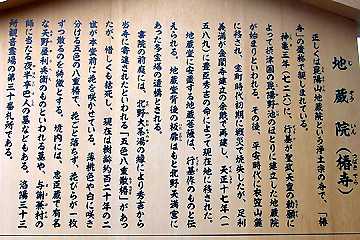 地蔵院（椿寺）
正しくは昆陽山地蔵院という浄土宗の寺で、「椿
寺」の通称で親しまれている。
神亀三年（七二六）に、行基が聖武天皇の勅願に
よって摂津国の昆陽野池のほとりに建立した地蔵院
が始まりといわれる。その後、平安時代に衣笠山麓
に移され、室町時代初期に戦災で焼失したが、足利
義満が金閣寺建立の余財で再建し、天正十七年（一
五八九）に豊臣秀吉の命によって現在地に移された。
地蔵堂に安置する地蔵菩薩は、行基作のものと伝
えられる。地蔵堂背後の板扉はもと北野天満宮に
あった多宝塔の遺構とされる。
書院の前庭には、北野大茶湯の縁により秀吉から
当寺に寄進されたといわれる「五色八重散椿」があっ
たが、惜しくも枯死し、現在は樹齢約百二十年の二
世が本堂前に花を咲かせている。薄桃色や白に咲き
分ける五色の八重椿で、花ごと落ちず、花びらが一枚
ずつ散るのを特徴とする。境内には、忠臣蔵で有名
な天野屋利兵衛のものといわれる墓や、与謝蕪村の
師に当たる夜半亭巴人の墓などもある。洛陽三十三
所観音霊場の第三十番札所である。